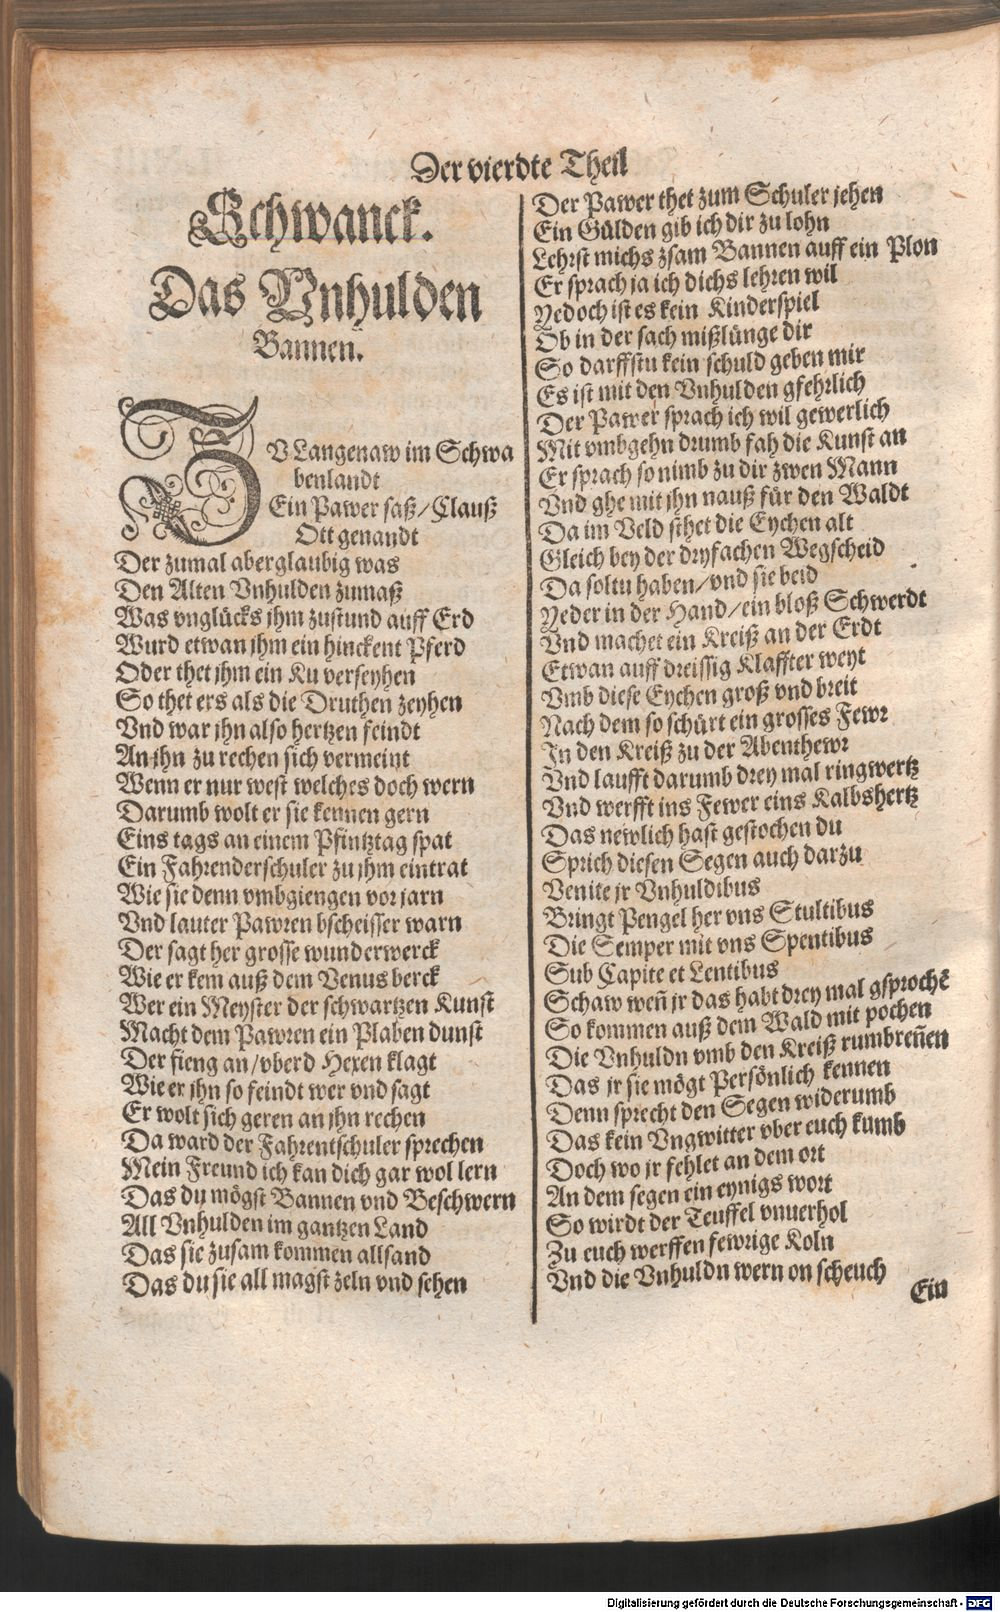 Der vierdte Theil
Schwanck.
Das Vnhulden
Bannen.
ZV Langenaw im Schwa
benlandt
Ein Pawer saß/Clauß
Ott genandt
Der zumal aberglaubig was
Den Alten Vnhulden zumaß
Was vnglücks jhm zustund auff Erd
Wurd etwan jhm ein hinckent Pferd
Oder thet jhm ein Ku verseyhen
So thet ers als die Druthen zeyhen
Vnd war jhn also hertzen feindt
An jhn zu rechen sich vermeint
Wenn er nur west welches doch wern
Darumb wolt er sie kennen gern
Eins tags an einem Pfintztag spat
Ein Fahrenderschuler zu jhm eintrat
Wie sie denn vmbgiengen vor jarn
Vnd lauter Pawren bscheisser warn
Der sagt her grosse wunderwerck
Wie er kem auß dem Venus berck
Wer ein Meyster der schwartzen Kunst
Macht dem Pawren ein Plaben dunst
Der fieng an/vberd Hexen klagt
Wie er jhn so feindt wer vnd sagt
Er wolt sich geren an jhn rechen
Da ward der Fahrentschuler sprechen
Mein Freund ich kan dich gar wol lern
Das du mögst Bannen vnd Beschwern
All Vnhulden im gantzen Land
Das sie zusam kommen allsand
Das du sie all magst zeln vnd sehen
Der Pawer thet zum Schuler jehen
Ein Gülden gib ich dir zu lohn
Lehrst michs zsam Bannen auff ein Plon
Er sprach ja ich dichs lehren wil
Yedoch ist es kein Kinderspiel
Ob in der sach mißlünge dir
So darffstu kein schuld geben mir
Es ist mit den Vnhulden gfehrlich
Der Pawer sprach ich wil gewerlich
Mit vmbgehn drumb fah die Kunst an
Er sprach so nimb zu dir zwen Mann
Vnd ghe mit jhn nauß für den Waldt
Da im Veld sthet die Eychen alt
Gleich bey der dryfachen Wegscheid
Da soltu haben/vnd sie beid
Yeder in der Hand/ein bloß Schwerdt
Vnd machet ein Kreiß an der Erdt
Etwan auff dreissig Klaffter weyt
Vmb diese Eychen groß vnd breit
Nach dem so schürt ein grosses Fewr
In den Kreiß zu der Abenthewr
Vnd laufft darumb drey mal ringwertz
Vnd werfft ins Fewer eins Kalbshertz
Das newlich hast gestochen du
Sprich diesen Segen auch darzu
Venite jr Vnhuldibus
Bringt Pengel her vns Stultibus
Die Semper mit vns Spentibus
Sub Capite et Lentibus
Schaw weñ jr das habt drey mal gsprochẽ
So kommen auß dem Wald mit pochen
Die Vnhuldn vmb den Kreiß rumbreñen
Das jr sie mögt Persönlich kennen
Denn sprecht den Segen widerumb
Das kein Vngwitter vber euch kumb
Doch wo jr fehlet an dem ort
An dem segen ein eynigs wort
So wirdt der Teuffel vnuerhol
Zu euch werffen fewrige Koln
Vnd die Vnhuldn wern on scheuch
Ein
Digitalisierung gefördert durch die Deutsche Forschungsgemeinschaft - DFG